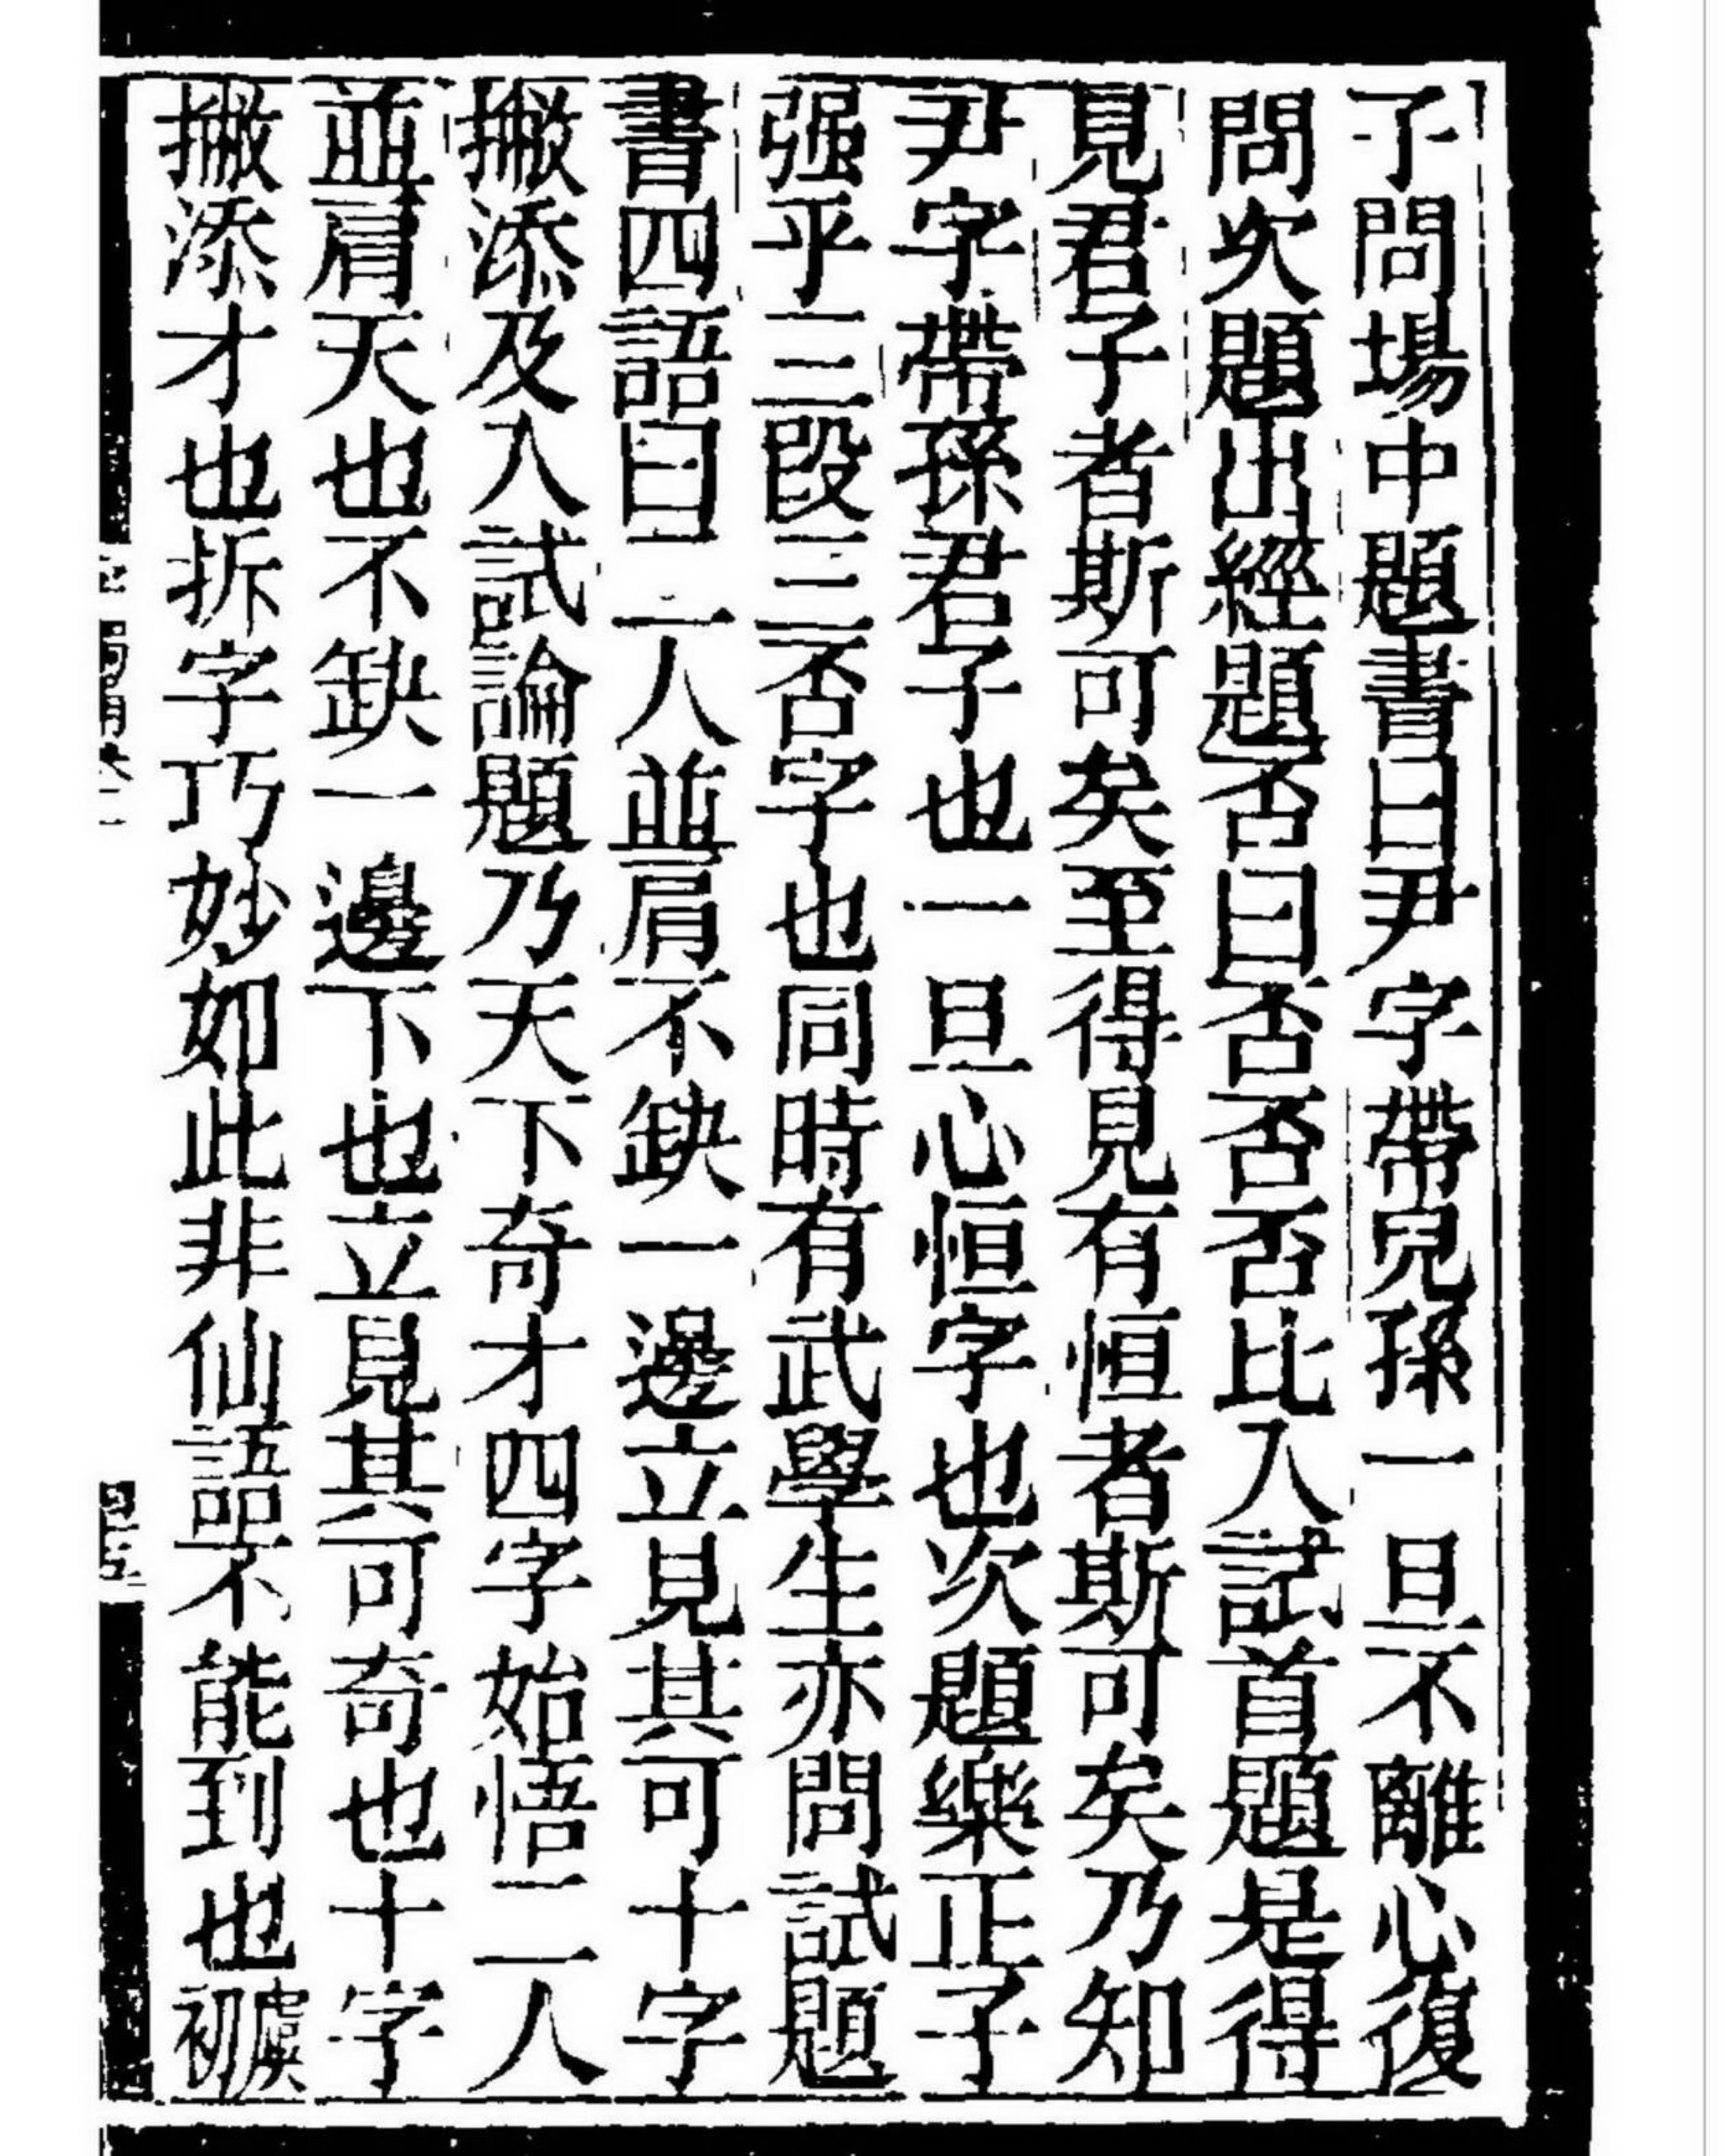 子問場中題書曰尹字帶兒孫一旦不離心復
問次題出經題否曰否否否比入試首題是得
見君子者斯可矣至得見有恒者斯可矣乃知
尹字帶孫君子也一旦心恒字也次題樂正子
强乎三段三否字也同時有武學生亦問試題
書四語曰二人並肩不缺一邊立見其可十字
撇添及入試論題乃天下奇才四字始悟二人
並肩天也不缺一邊下也立見其可奇也十字
撇添才也拆字巧妙如此非仙語不能到也虞初